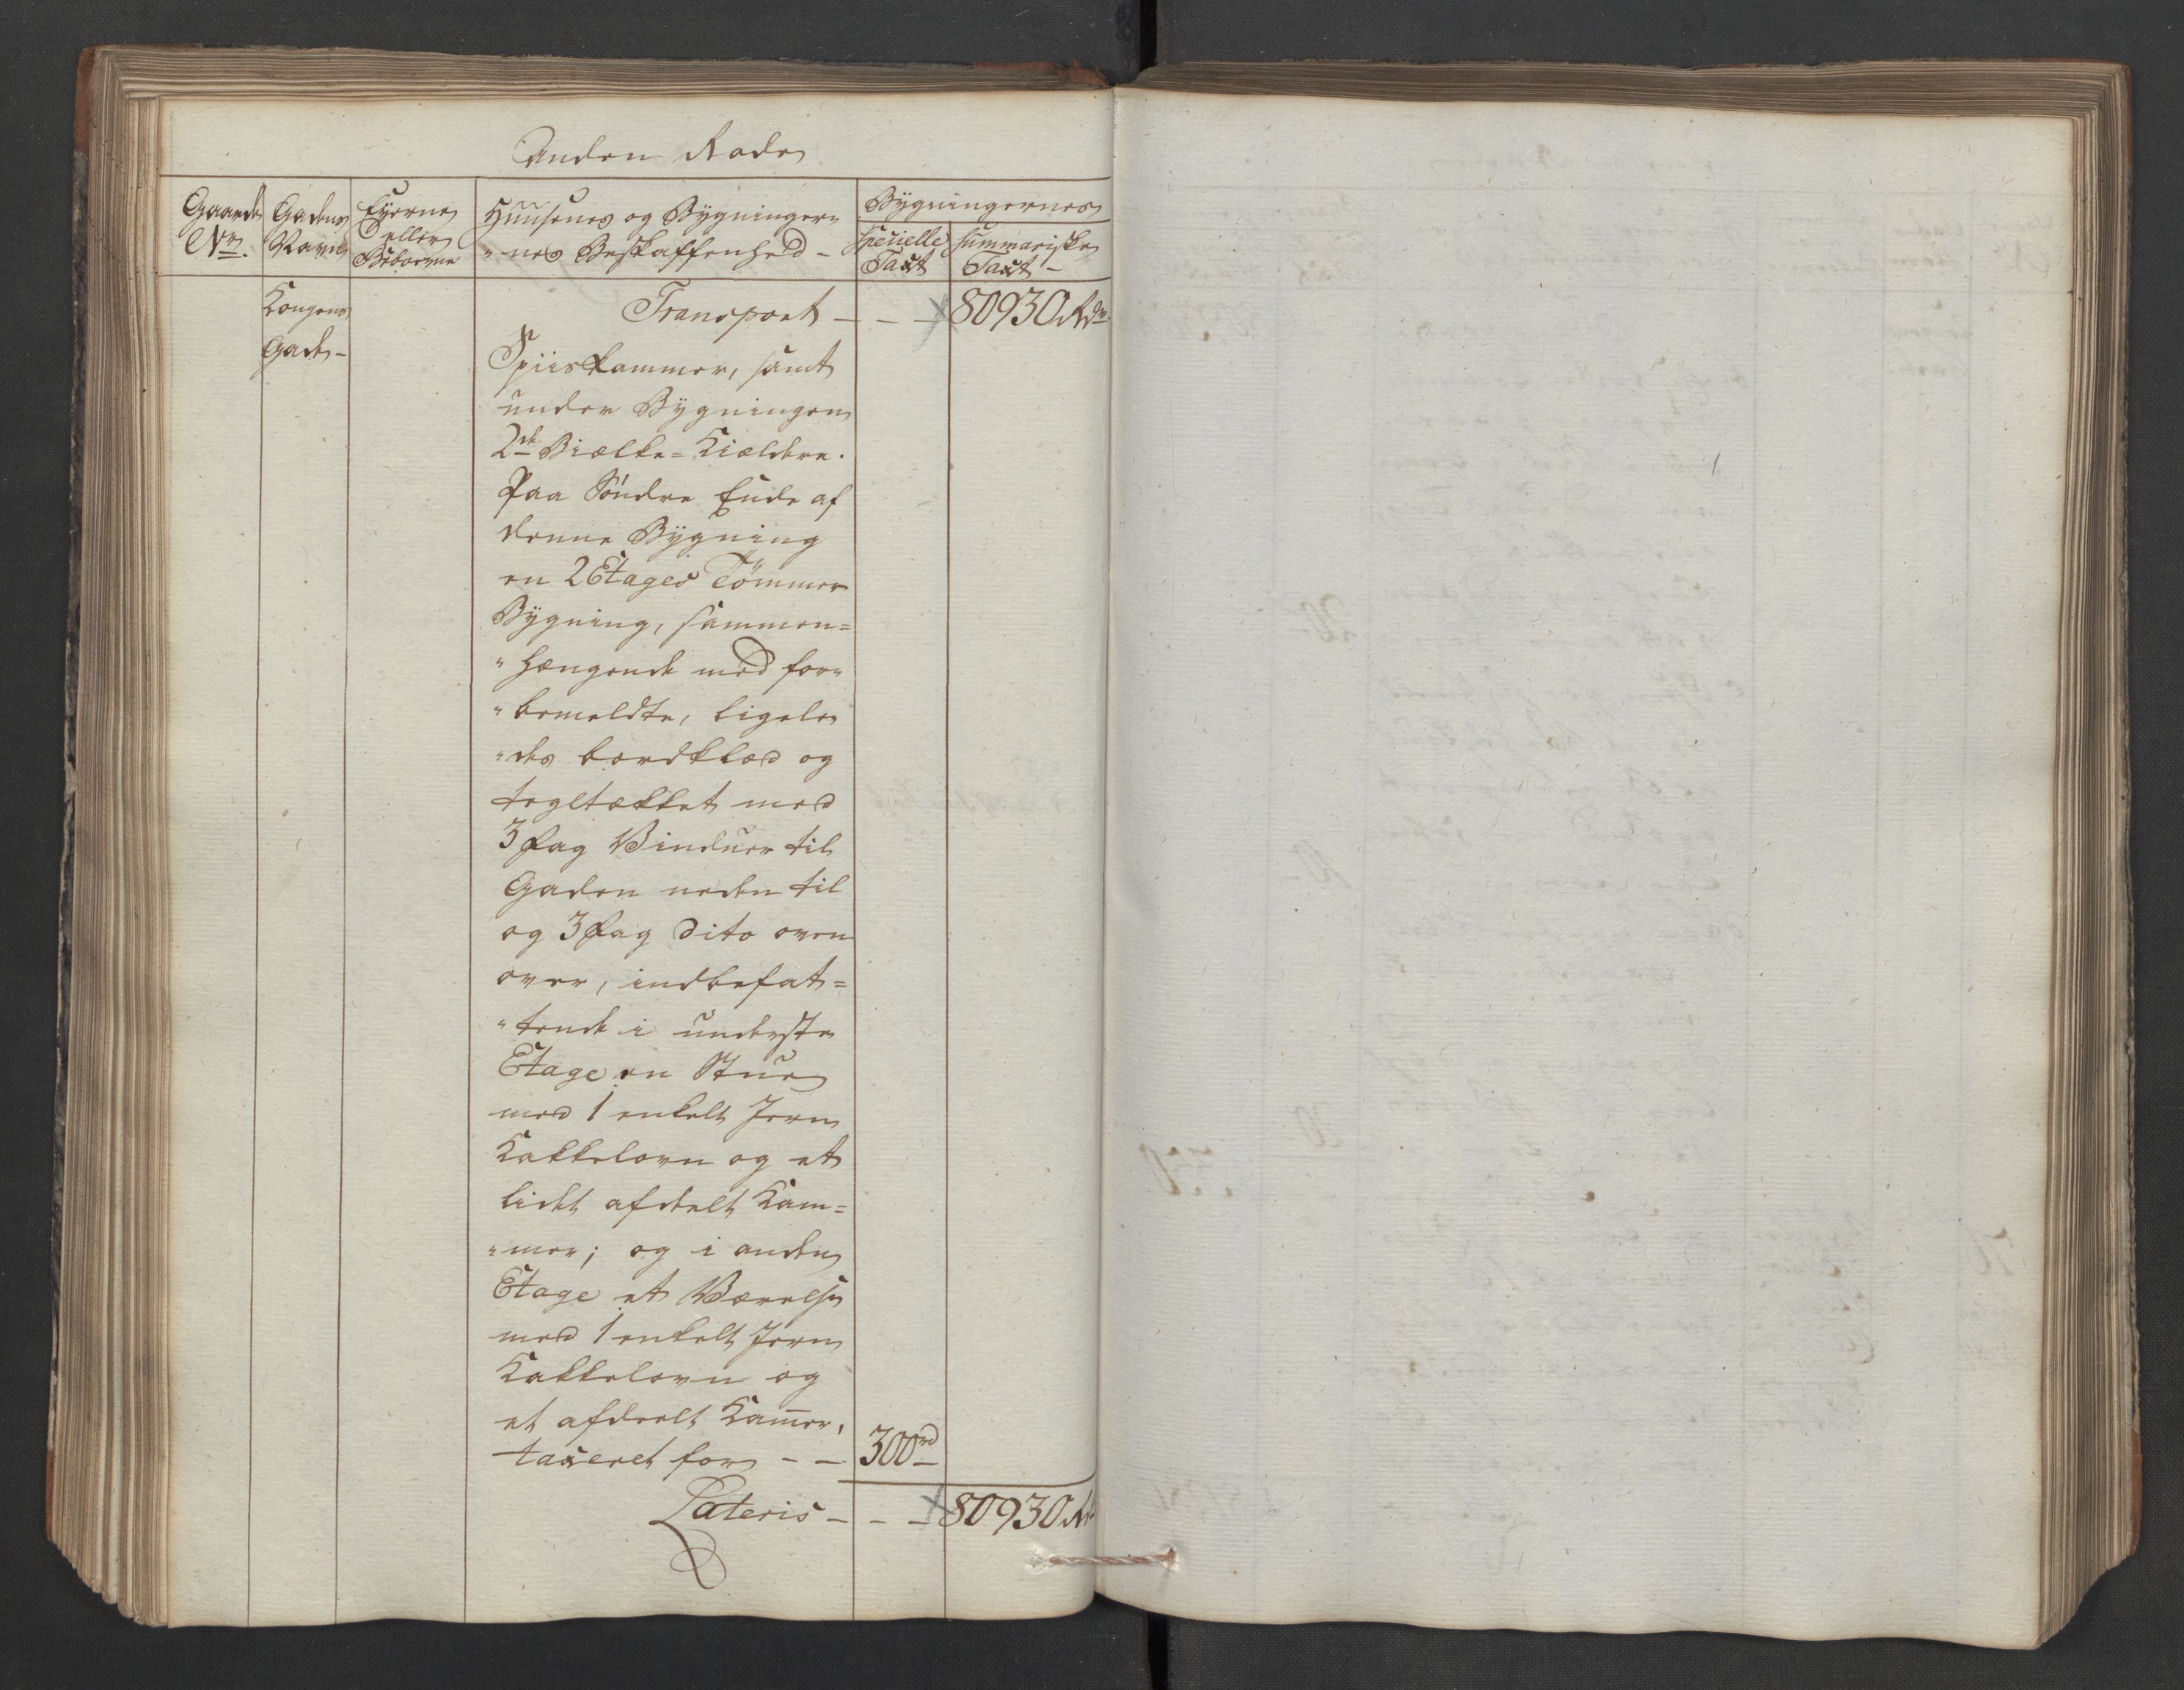 Anden Rode
Gaards Nr.
Gadens Navn
Eyerne eller Beboerne
Huusenes og Bygninger-
-nes Beskaffenhed -
Bygningernes
specielle Taxt
summariske Taxt -
Kongens
Gade -
Transport - - - 80930 Rdr.
Spiiskammer, samt
under Bygningen
2de Bielke = Kieldere.
Paa Söndre Ende af
denne Bygning
en 2 Etages Tömmer
Bygning, sammen=
"hængende med for-
"bemeldte, ligele-
"des bordklæd og
tegltækket med
3 Fag Vinduer til
Gaden neden til
og 3 Fag dito oven
over, indbefat=
"tende i underste
Etage en Stue
med 1 enkelt Jern
Kakkelovn og et
lidet afdeelt Kam=
"mer; og i anden
Etage et Værelse
med 1 enkelt Jern
Kakkelovn og
et afdeelt Kam̄er,
taxeret for - - 300 rd
Lateris - - - 80930 Rd